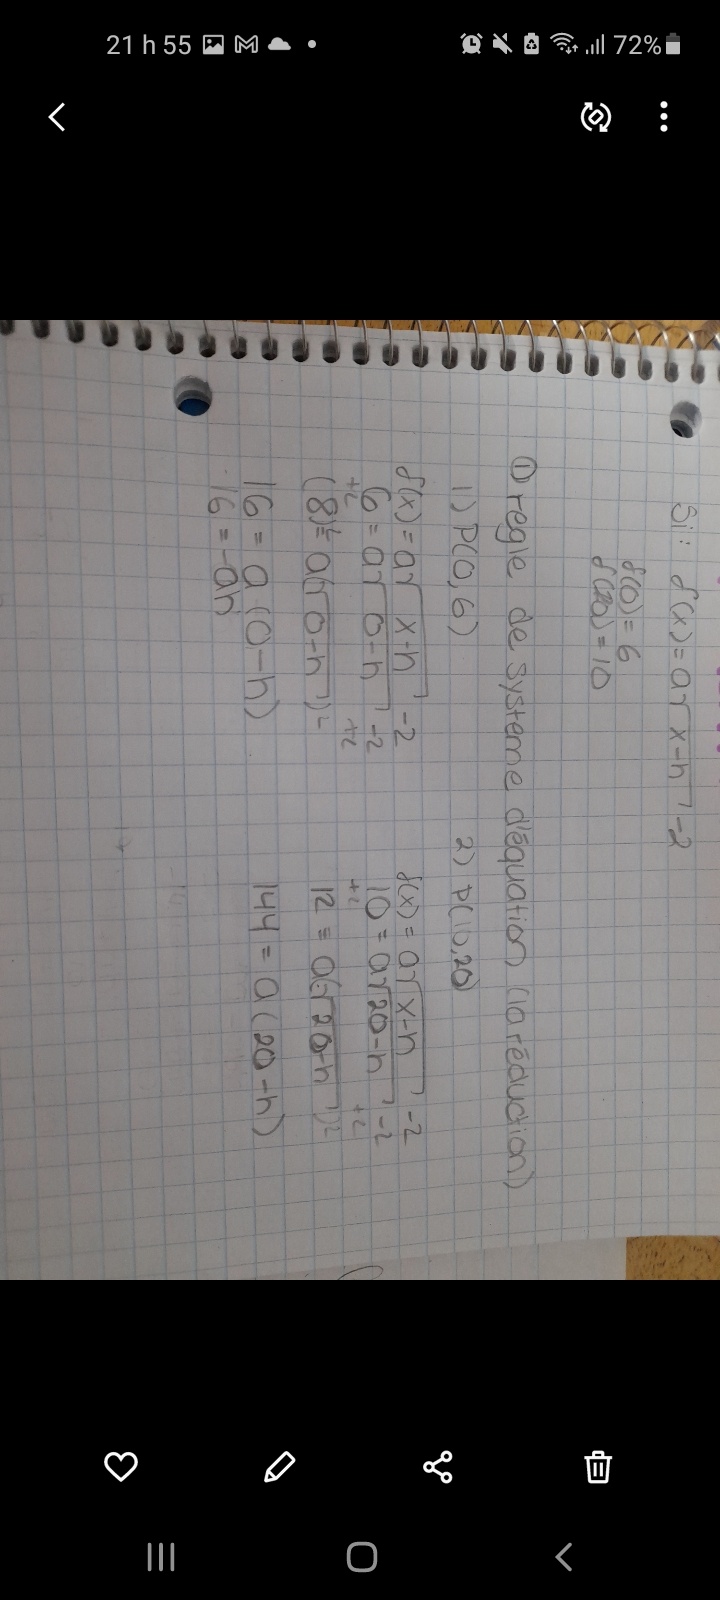 21 h 55
72%
Si: f(x) = a√x-h -2
f(0) = 6
f(20) = 10
① regle de systeme d'équation (la réduction)
1) P(0,6)
f(x) = a√x-h -2
6 = a√0-h -2
+2 +2
(8)² = a(√0-h)²
16 = a(0-h)
16 = -ah
2) P(10,20)
f(x) = a√x-h -2
10 = a√20-h -2
+2 +2
12 = a(√20-h)²
144 = a(20-h)